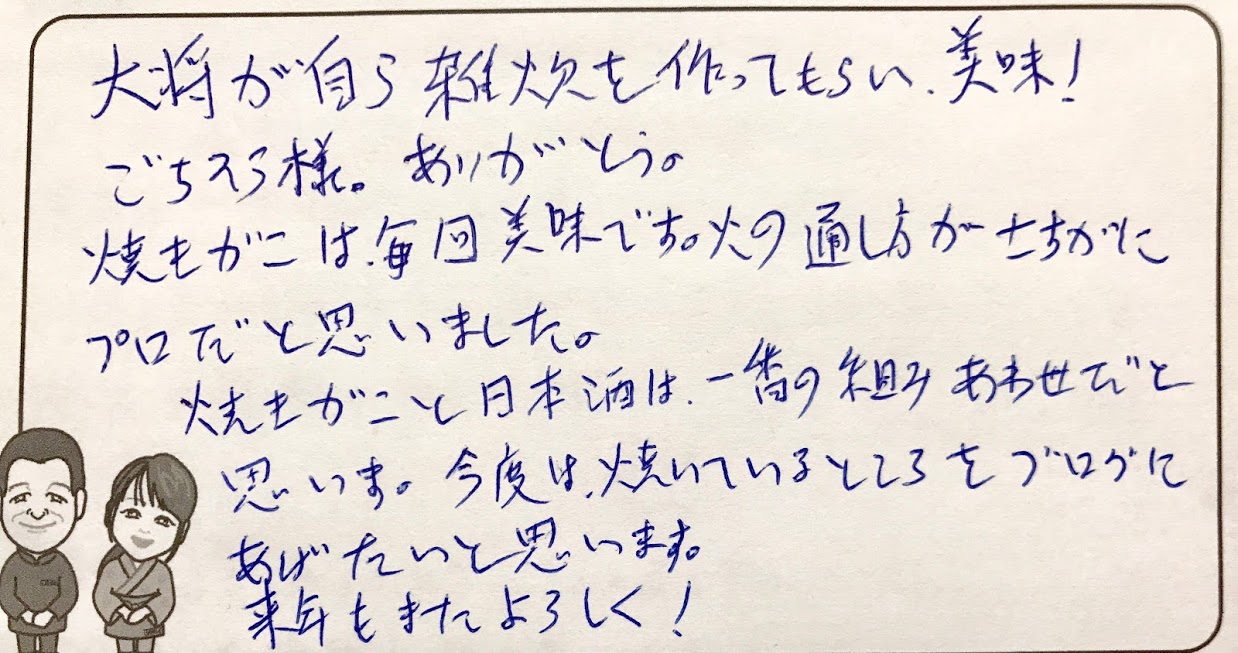 大将が自ら雑炊を作ってもらい、美味！
ごちそう様。ありがとう。
焼きがには、毎回美味です。火の通し方がさすがに
プロだと思いました。
焼きがにと日本酒は、一番の組みあわせだと
思いす。今度は、焼いているところをブログに
あげたいと思います。
来年もまたよろしく！